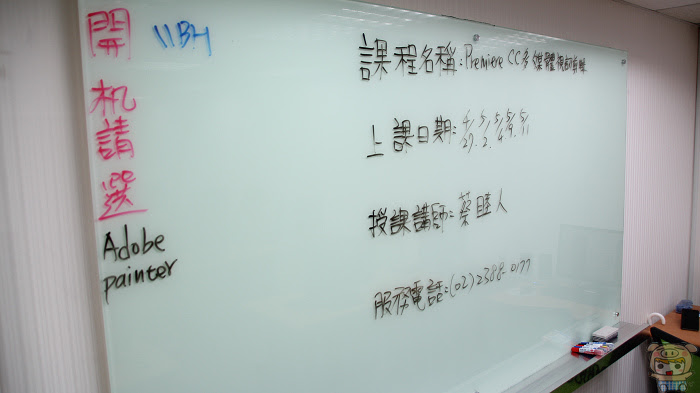 開机請選
Adobe
painter
11BH
課程名稱:Premiere CC多媒體視訊剪輯
上課日期:4/27、5/2、5/4、5/9、5/11
授課講師:蔡睦人
服務電話:(02)2388-0177